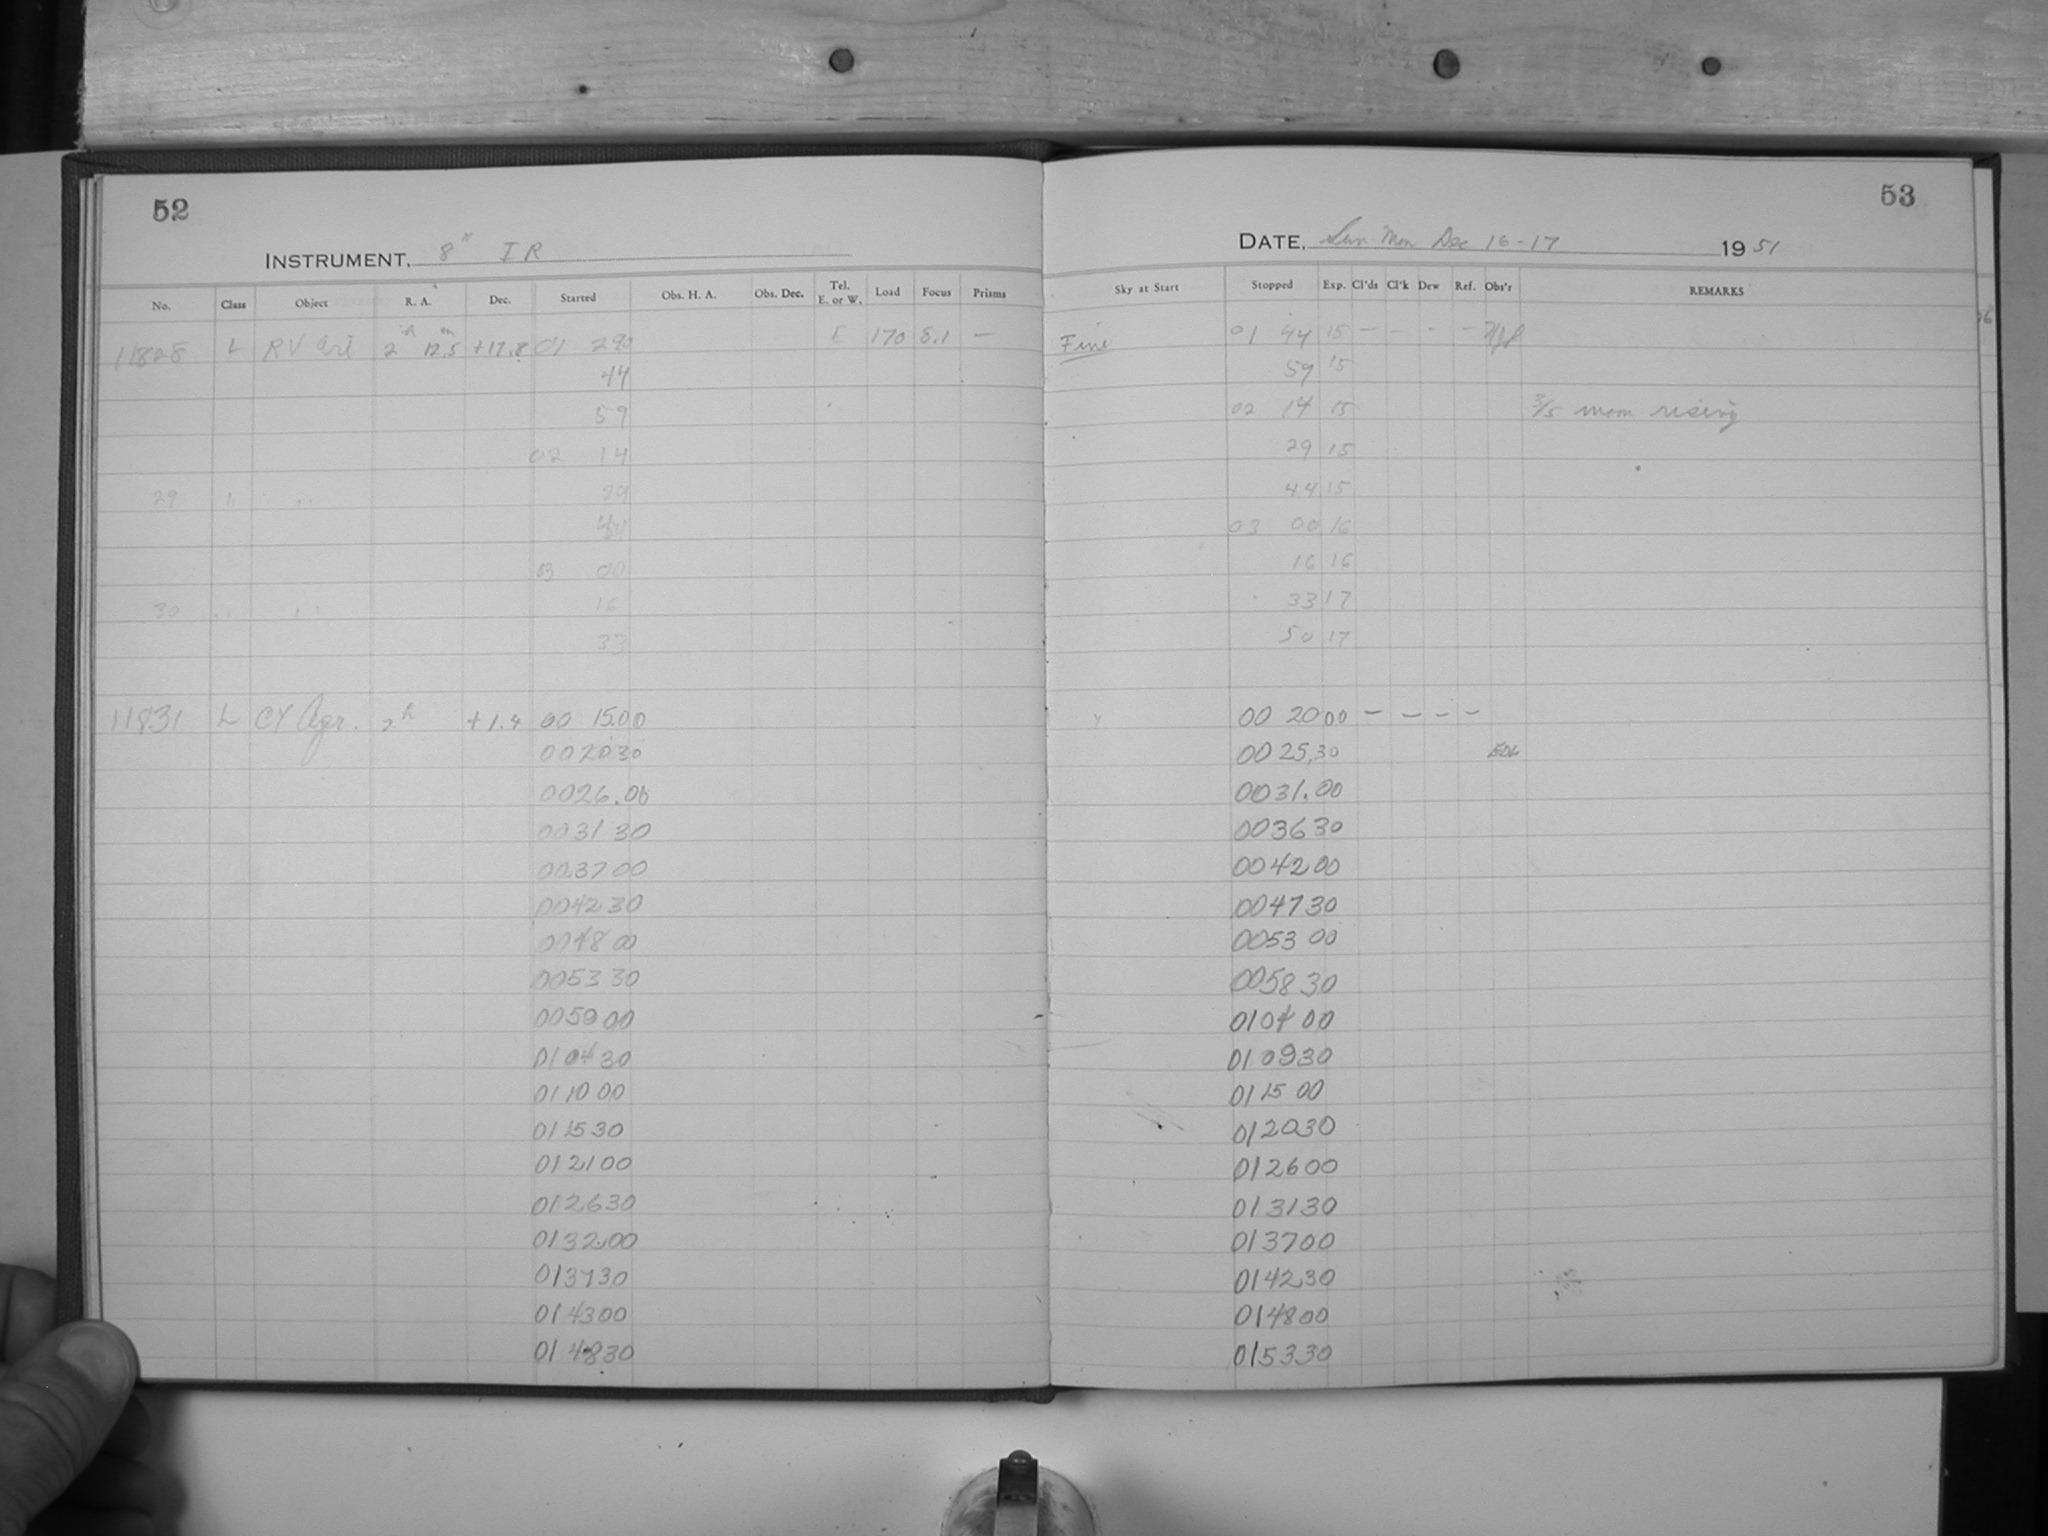 52
INSTRUMENT, 8" I R
No. Class Object R. A. Dec. Started Obs. H. A. Obs. Dec. Tel. E. or W. Load Focus Prisms
11828 L RV Ari 2h 12.5m +17.8 01 29 E 170 8.1 —
44
59
02 14
29 " " 29
44
03 00
30 " " 16
33
11831 L CY Aqr. 2h +1.4 00 15.00
00 20 30
00 26.00
00 31 30
00 37 00
00 42 30
00 48 00
00 53 30
00 59 00
01 04 30
01 10 00
01 15 30
01 21 00
01 26 30
01 32 00
01 37 30
01 43 00
01 48 30
53
DATE, Sun Mon Dec 16-17 1951
Sky at Start Stopped Exp. Cl'ds Cl'k Dew Ref. Obs'r REMARKS
Fine 01 44 15 — - - -
59 15
02 14 15 3/5 moon rising
29 15
44 15
03 00 16
16 16
33 17
50 17
00 20 00 — — — —
00 25,30
00 31.00
00 36 30
00 42 00
00 47 30
00 53 00
00 58 30
01 04 00
01 09 30
01 15 00
01 20 30
01 26 00
01 31 30
01 37 00
01 42 30
01 48 00
01 53 30